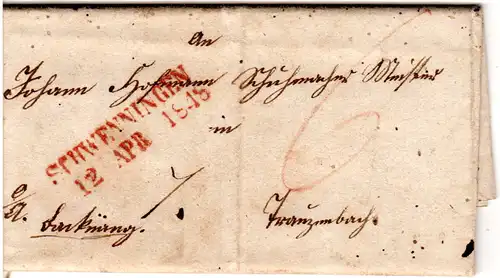 An
Johann Hofmann Schuhmacher Meister
SCHWENNINGEN
12 APR 1848
in
6
7
Trauzenbach.
Backnang.